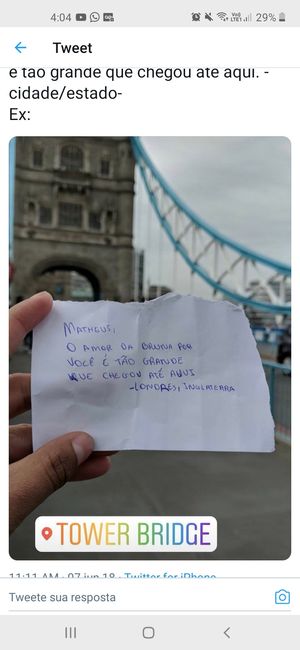 4:04
29%
Tweet
é tão grande que chegou até aqui. -
cidade/estado-
Ex:
MATHEUS,
O AMOR DA BRUNA POR
VOCÊ É TÃO GRANDE
QUE CHEGOU ATÉ AQUI
-LONDRES, INGLATERRA
TOWER BRIDGE
11:11 AM · 07 jun 18 · Twitter for iPhone
Tweete sua resposta